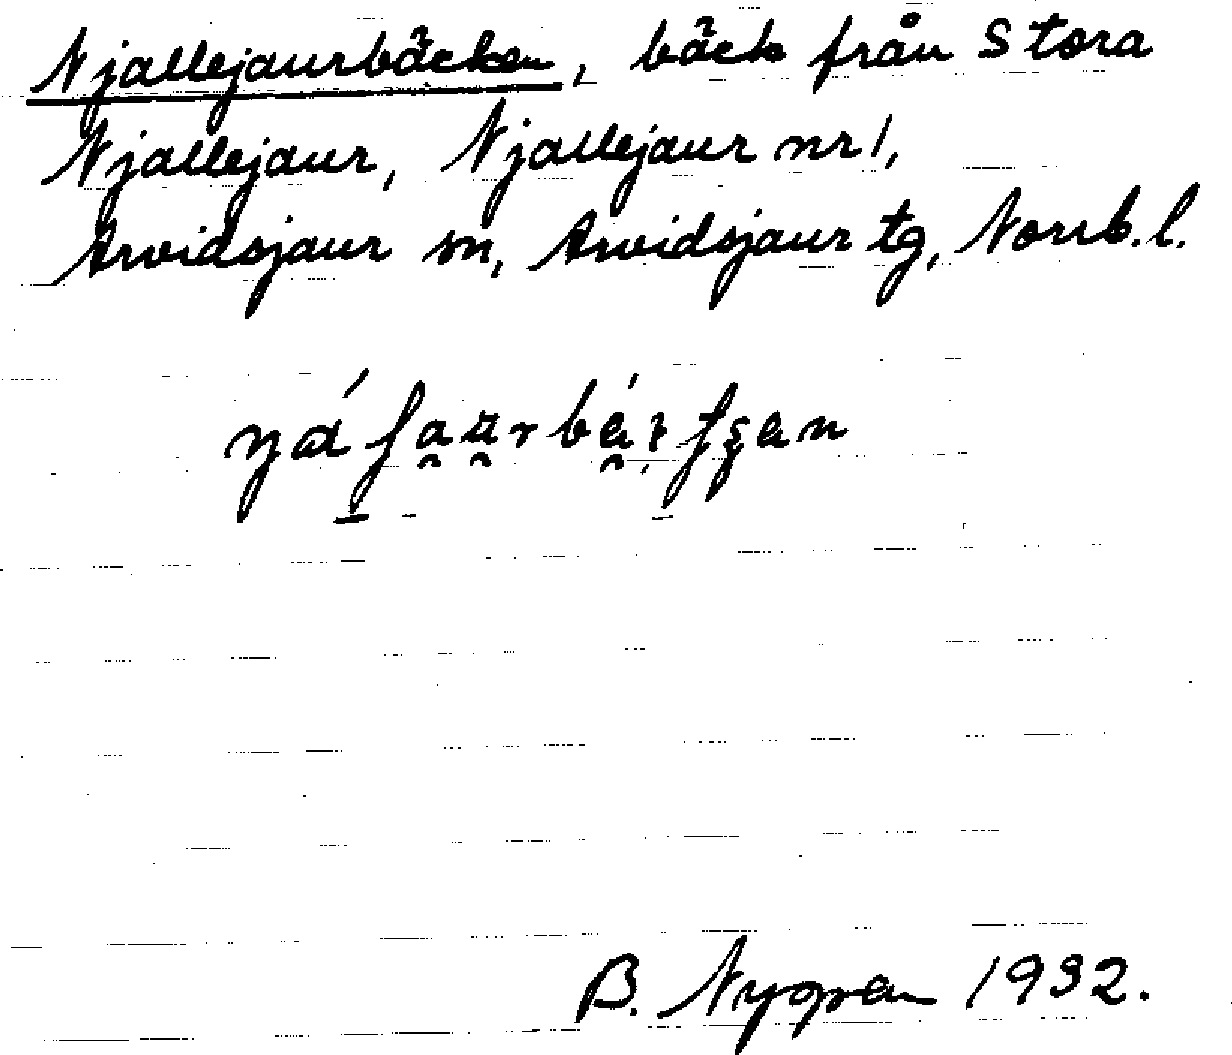 Njallejaurbäcken, bäck från Stora
Njallejaur, Njallejaur nr 1,
Arvidsjaur sn, Arvidsjaur tg, Norrb. l.
B. Nygren 1932.